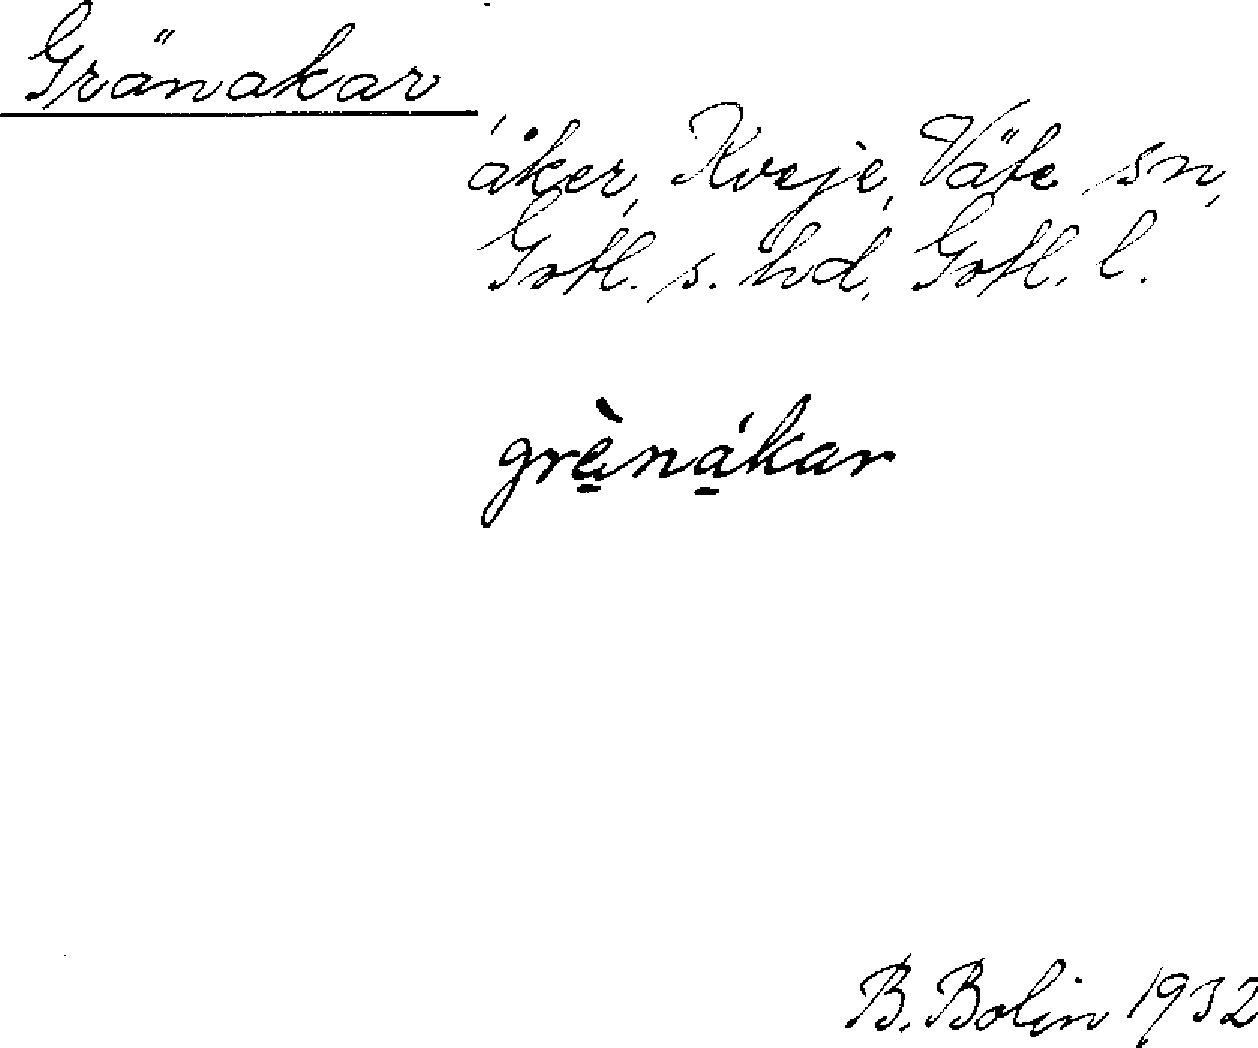 Gränakar
åker, Kveje, Väte sn,
Gotl. s. hd, Gotl. l.
grè̱ná̱kar
B. Bolin 1932